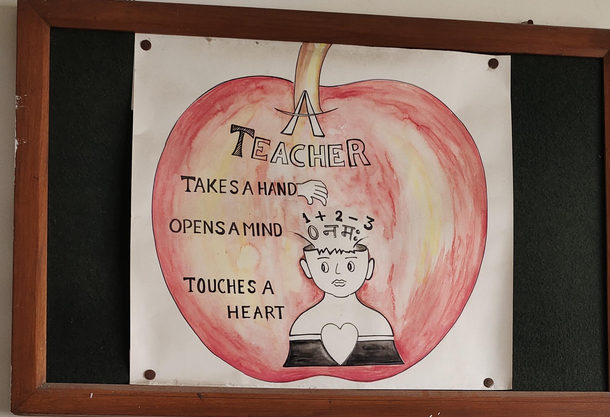 A
TEACHER
TAKES A HAND
1 + 2 − 3
नमः
OPENS A MIND
TOUCHES A
HEART